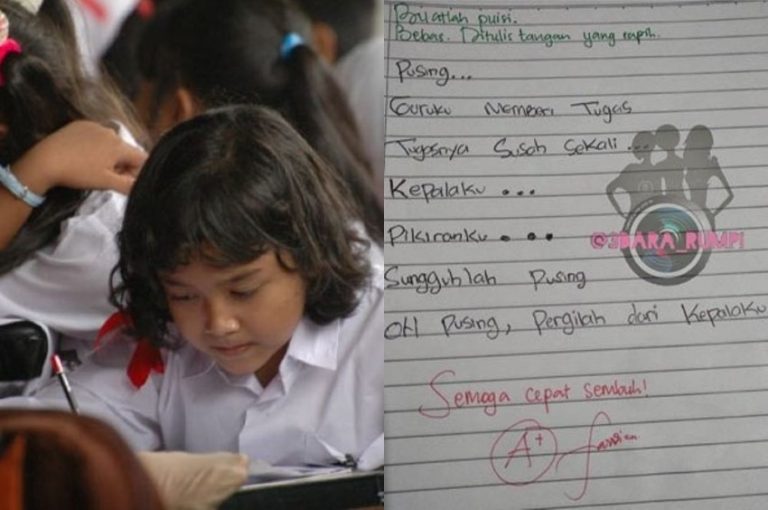 Buatlah puisi.
Bebas. Ditulis tangan yang rapih.
Pusing...
Guruku Memberi Tugas
Tugasnya Susah Sekali...
Kepalaku ...
Pikiranku ...
Sungguhlah Pusing
OH Pusing, Pergilah dari Kepalaku
@3DARA_RUMPI
Semoga cepat sembuh!
A+